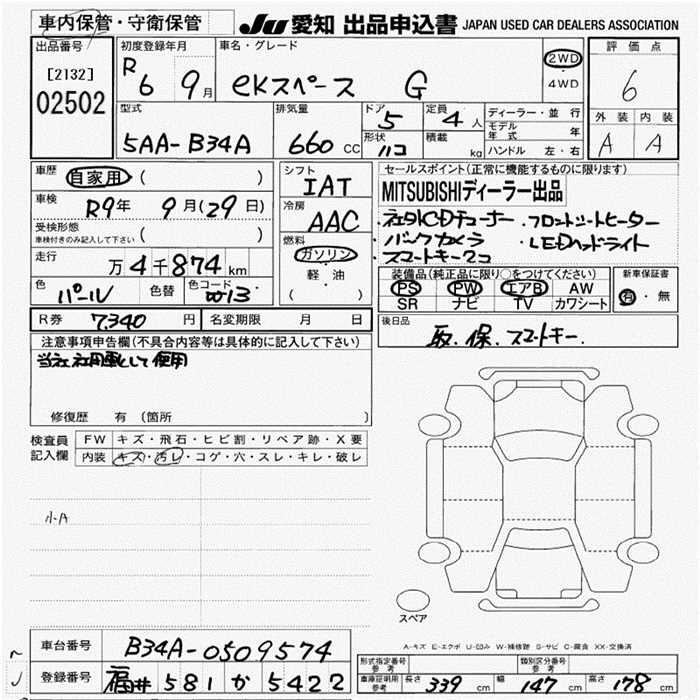 車内保管・守衛保管
JU 愛知 出品申込書 JAPAN USED CAR DEALERS ASSOCIATION
出品番号
[2132]
02502
初度登録年月
R6 9月
車名・グレード
eKスペース G
2WD
・
4WD
評価点
6
外装 内装
A A
型式
5AA-B34A
排気量
660 cc
ドア
5
形状
ハコ
定員
4人
積載
kg
ディーラー・並行
モデル年式 年
ハンドル 左・右
車歴
自家用 ( )
車検
R9年 9月(29日)
受検形態
車検付きのみ記入して下さい ( )
走行
万4千874km
色 パール 色替 色コード W13
シフト
IAT
冷房
AAC
燃料
ガソリン
軽油
( )
セールスポイント(正常に機能するものに限ります)
MITSUBISHIディーラー出品
・社外CDチューナー ・フロントシートヒーター
・バックカメラ ・LEDヘッドライト
・スマートキー2コ
装備品(純正品に限り○をつけてください)
PS PW エアB AW
SR ナビ TV カワシート
新車保証書
有・無
R券 7,340円 名変期限 月 日
後日品
取.保.スマートキー.
注意事項申告欄(不具合内容等は具体的に記入して下さい)
当社社用車として使用
修復歴 有 (箇所
検査員記入欄
FW キズ・飛石・ヒビ割・リペア跡・X要
内装 キズ・汚レ・コゲ・穴・スレ・キレ・破レ
小A
スペア
A-キズ E-エクボ U-凹み W-補修跡 S-サビ C-腐食 XX-交換済
車台番号 B34A-0509574
登録番号 福井 581 か 5422
形式指定番号 参考
類別区分番号 参考
車庫証明用 参考 長さ 339 cm 幅 147 cm 高さ 178 cm